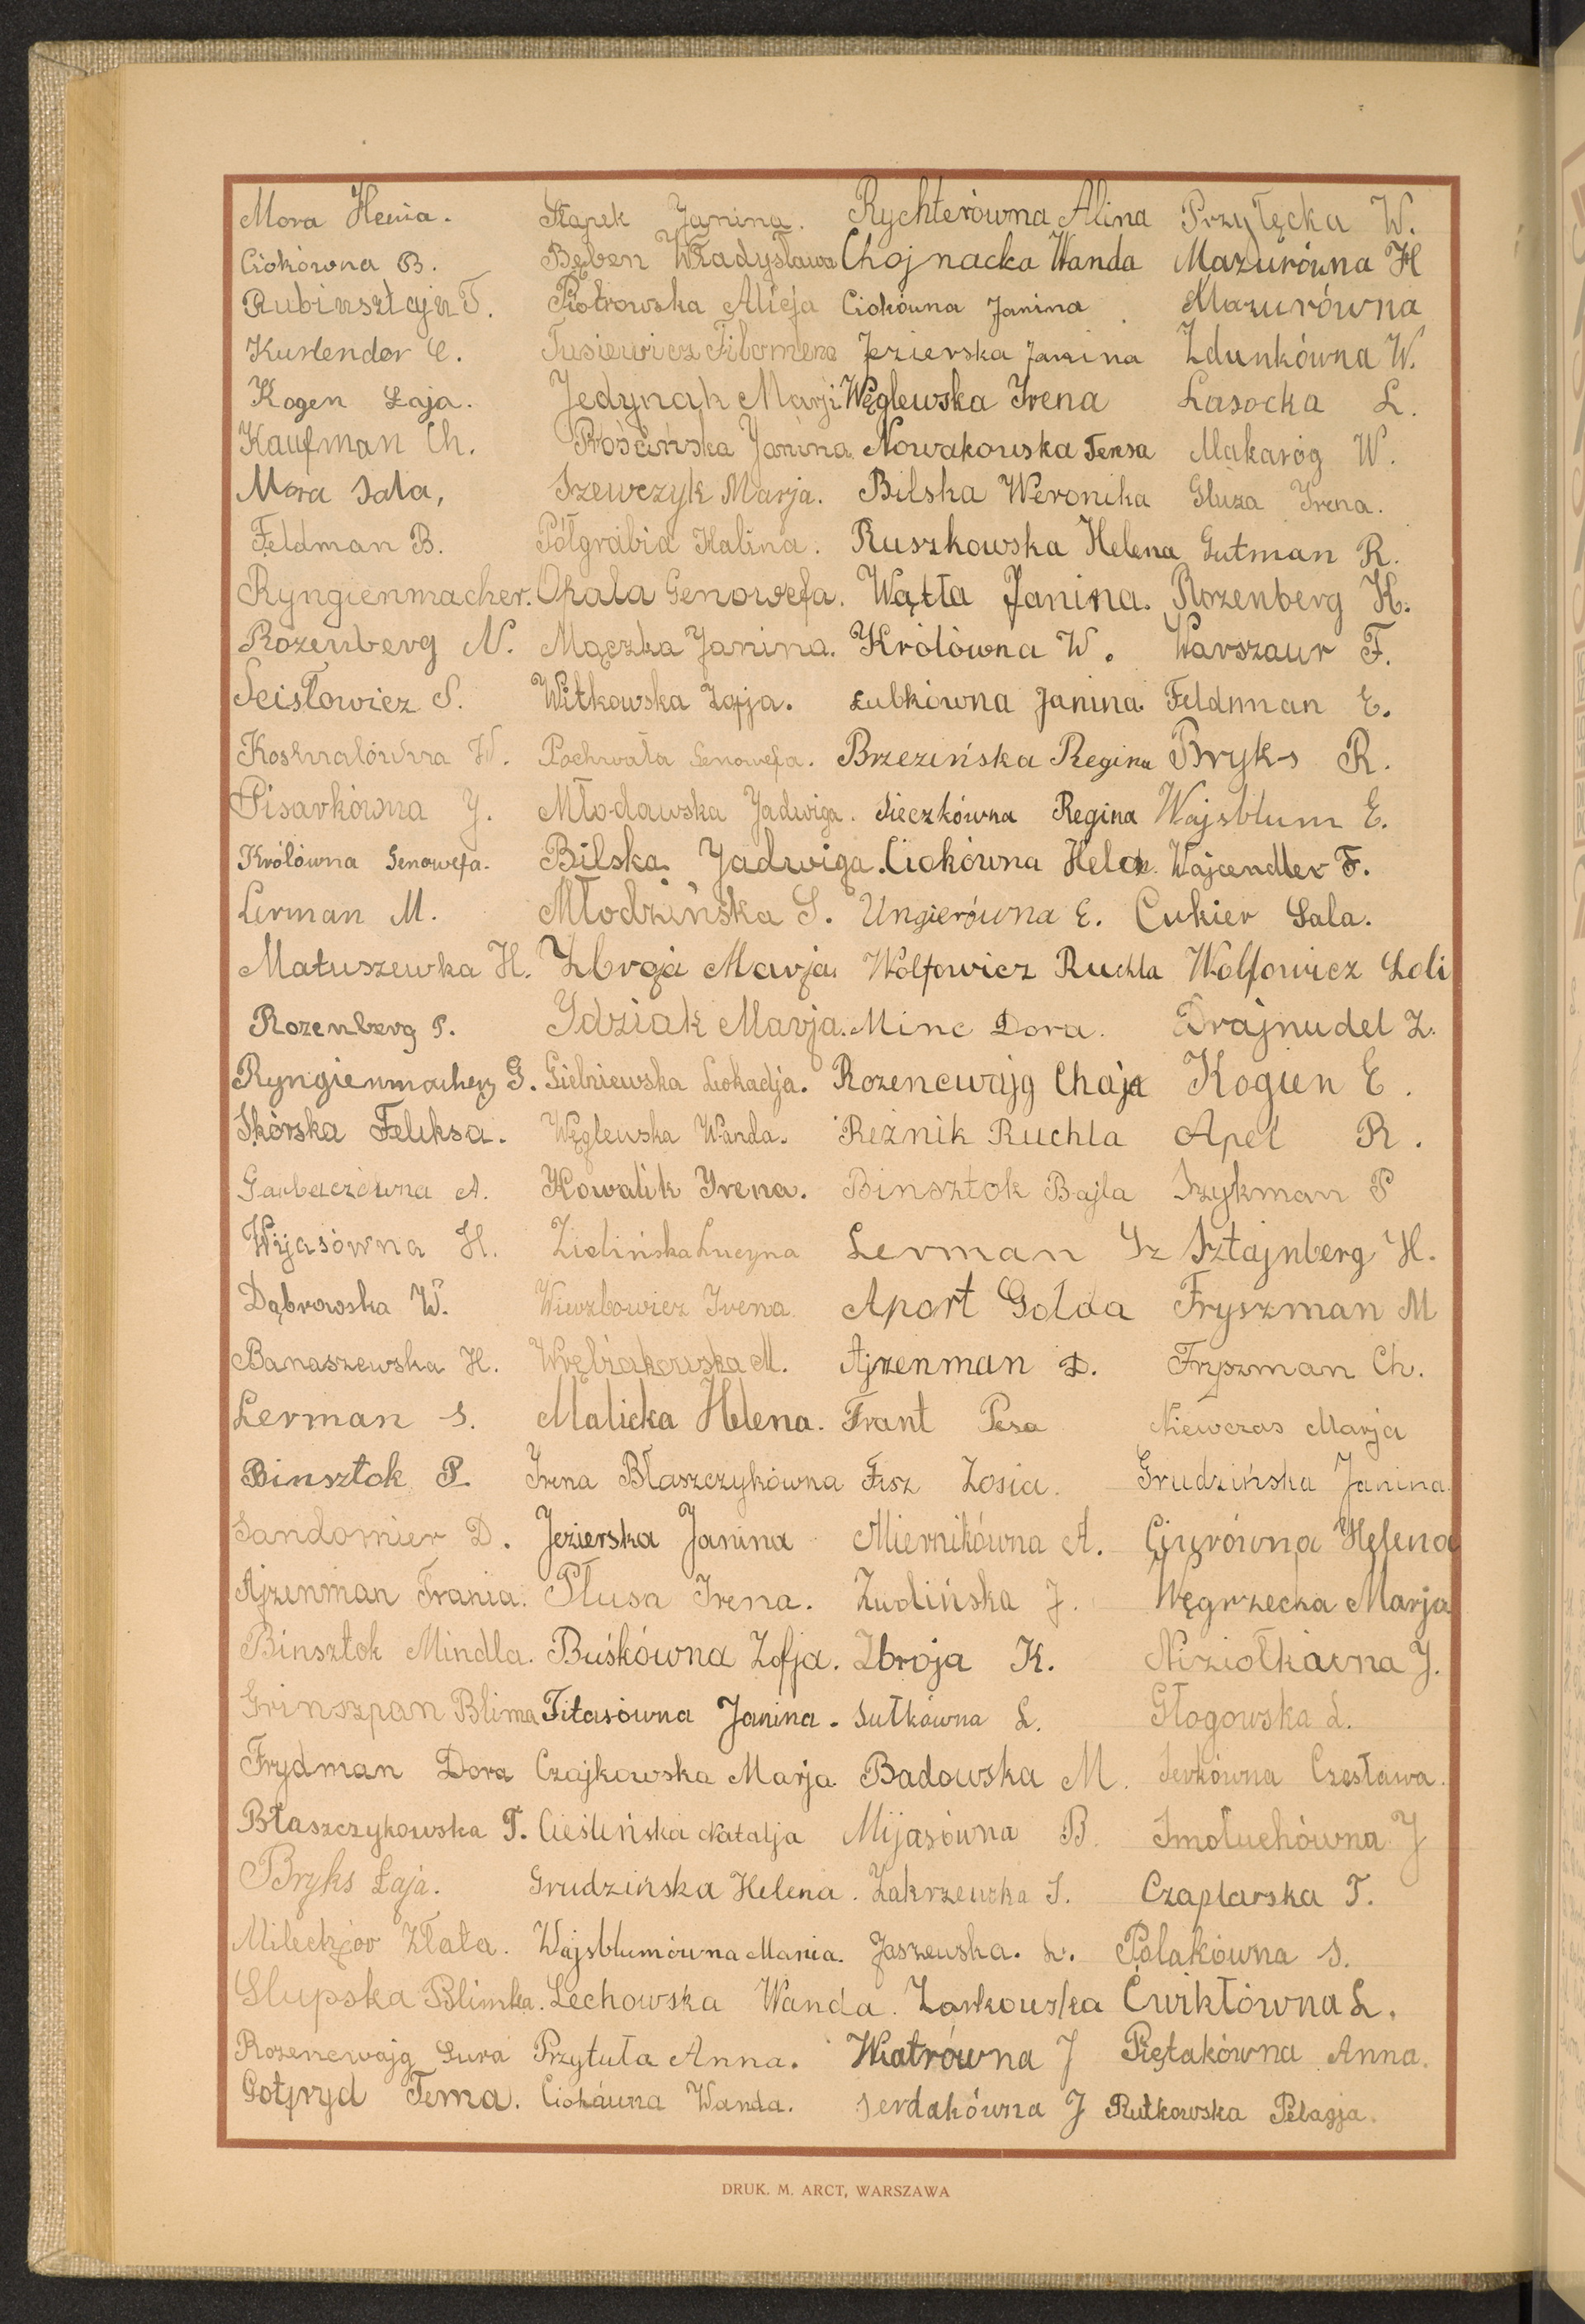 Mora Henia. Słapek Janina. Rychterówna Alina Przyłęcka W.
Ciokówna B. Bęben Władysława Chojnacka Wanda Mazurówna H
Rubinsztajn T. Piotrowska Alicja Ciokówna Janina Mazurówna
Kurlender C. Tusiewicz Filomena Jezierska Janina Zdunkówna W.
Kogen Łaja. Jedynak Marji Węglewska Irena Lasocka L.
Kaufman Ch. Prościńska Janina Nowakowska Teresa Makaróg W.
Mora Sala, Szewczyk Marja. Bilska Weronika Głuza Irena.
Feldman B. Półgrabia Halina. Ruszkowska Helena Gutman R.
Ryngienmacher. Opala Genowefa. Wątła Janina. Rozenberg H.
Rozenberg N. Mączka Janina. Królówna W. Warszaur F.
Seisłowicz S. Witkowska Zofja. Łubkówna Janina Feldman E.
Koszualówna W. Pochwała Genowefa. Brzezińska Regina Bryks R.
Pisarkówna J. Młodawska Jadwiga. Sieczkówna Regina Wajsblum E.
Królówna Genowefa. Bilska Jadwiga. Ciokówna Hela. Wajcendler F.
Lerman M. Młodzińska S. Ungierówna E. Cukier Sala.
Matuszewska H. Zbroja Marja. Wolfowicz Ruchla Wolfowicz Loli
Rozenberg P. Idziak Marja. Minc Dora. Drajnudel Z.
Ryngienmacher G. Sielniewska Leokadja. Rozencwajg Chaja Kogien E.
Skórska Feliksa. Węglewska Wanda. Reźnik Ruchla Apel R.
Garbaczówna A. Kowalik Irena. Binsztok Bajla Szykman P
Wijasówna H. Zielińska Lucyna Lerman Sz Sztajnberg H.
Dąbrowska W. Wierzbowicz Irena Aport Gołda Fryszman M
Banaszewska H. Wrębiakowska M. Ajzenman D. Fryszman Ch.
Lerman S. Malicka Helena. Frant Pesa Niewczas Marja
Binsztok P. Irena Błaszczykówna Fisz Zosia. Grudzińska Janina.
Sandomier D. Jezierska Janina Miernikówna A. Ciurówna Helena
Ajzenman Frania. Plusa Irena. Zielińska J. Węgrzecka Marja
Binsztok Mindla. Buśkówna Zofja. Zbroja K. Niziołkówna J.
Grinszpan Blima Fitasówna Janina. Sułkówna L. Głogowska L.
Frydman Dora Czajkowska Marja Badowska M. Serkówna Czesława.
Błaszczykowska T. Cieślińska Natalja Mijasówna B. Smołuchówna J
Bryks Łaja. Grudzińska Helena. Zakrzewska S. Czaplarska T.
Milechjor Złata. Wajsblumówna Mania. Jaszewska. L. Polakówna S.
Słupska Blimka. Lechowska Wanda. Zankowska Ćwikłówna L.
Rozencwajg Sura Przytuła Anna. Wiatrówna J Piętakówna Anna.
Gotfryd Tema. Ciokówna Wanda. Serdakówna J Rutkowska Pelagja.
DRUK. M. ARCT, WARSZAWA